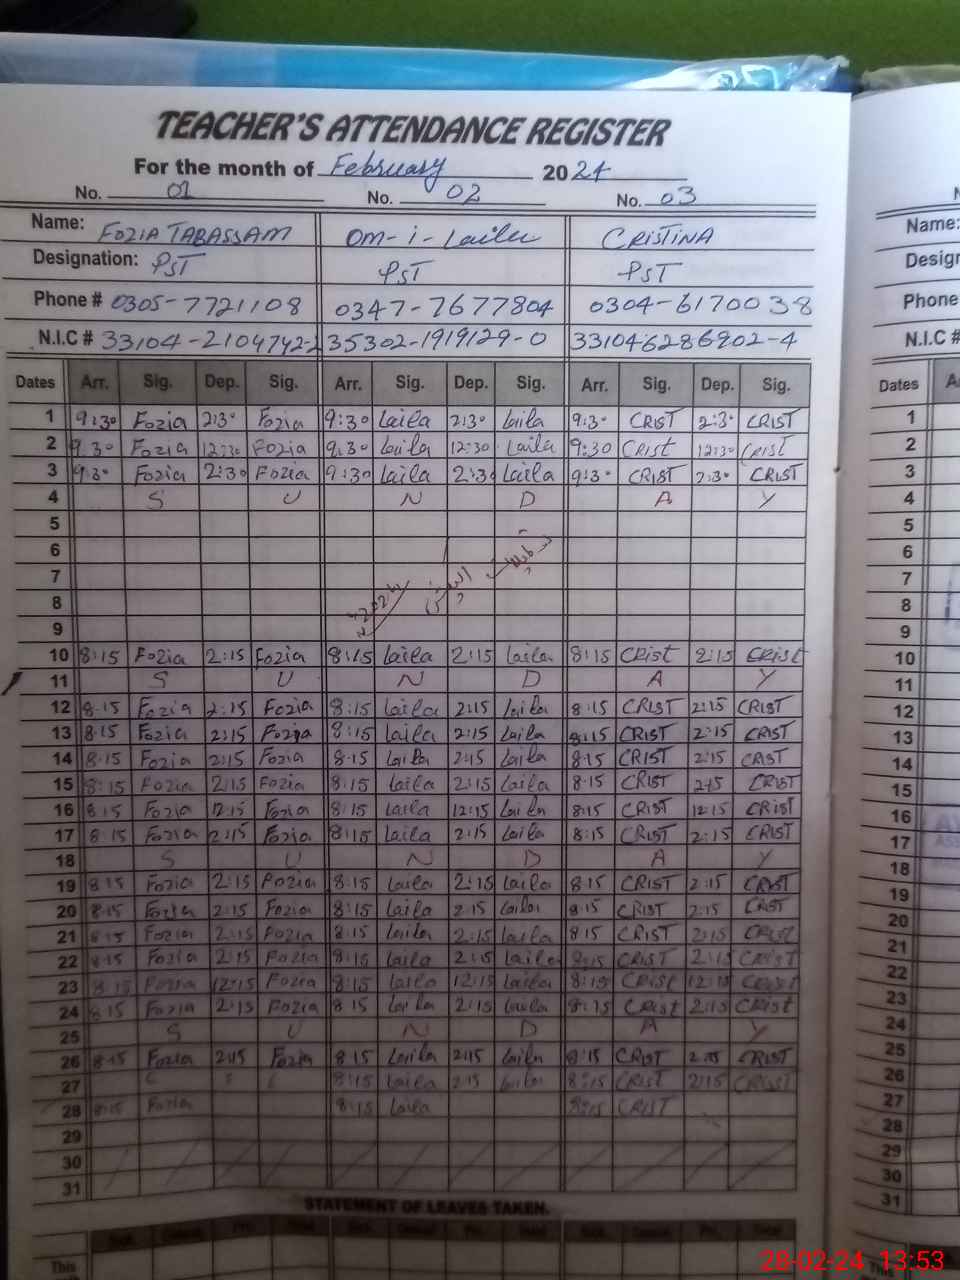 TEACHER'S ATTENDANCE REGISTER
For the month of February 2024
No. 01 No. 02 No. 03
Name: FOZIA TABASSAM Om-i-Laila CRISTINA
Name:
Designation: PST PST PST
Phone # 0305-7721108 0347-7677804 0304-6170038
Phone
N.I.C # 33104-2104742- 35302-1919129-0 331046286902-4
N.I.C #
Dates Arr. Sig. Dep. Sig. Arr. Sig. Dep. Sig. Arr. Sig. Dep. Sig. Dates
1 9:30 Fozia 2:30 Fozia 9:30 Laila 2:30 Laila 9:30 CRIST 2:30 CRIST 1
2 9.30 Fozia 12:30 Fozia 9.30 Laila 12:30 Laila 9:30 Crist 12:30 Crist 2
3 9:30 Fozia 2:30 Fozia 9:30 Laila 2:30 Laila 9:30 CRIST 2:30 CRIST 3
4 S U N D A Y 4
5 5
6 6
7 7
8 2024 8
9 9
10 8:15 Fozia 2:15 Fozia 8:15 Laila 2:15 Laila 8:15 CRist 2:15 CRist 10
11 S U N D A Y 11
12 8.15 Fozia 2:15 Fozia 8:15 Laila 2:15 Laila 8:15 CRIST 2:15 CRIST 12
13 8.15 Fozia 2:15 Fozia 8:15 Laila 2:15 Laila 8:15 CRIST 2:15 CRIST 13
14 8.15 Fozia 2:15 Fozia 8.15 Laila 2:15 Laila 8.15 CRIST 2:15 CRIST 14
15 8:15 Fozia 2:15 Fozia 8:15 Laila 2:15 Laila 8.15 CRIST 2:15 CRIST 15
16 8.15 Fozia 12:15 Fozia 8:15 Laila 12:15 Laila 8:15 CRIST 12:15 CRIST 16
17 8:15 Fozia 2:15 Fozia 8:15 Laila 2:15 Laila 8:15 CRIST 2:15 CRIST 17
18 S U N D A Y 18
19 8.15 Fozia 2:15 Fozia 8:15 Laila 2:15 Laila 8.15 CRIST 2:15 CRIST 19
20 8.15 Fozia 2:15 Fozia 8:15 Laila 2.15 Laila 8.15 CRIST 2:15 CRIST 20
21 8.15 Fozia 2:15 Fozia 8:15 Laila 2:15 Laila 8.15 CRIST 2:15 CRIST 21
22 8.15 Fozia 2:15 Fozia 8:15 Laila 2:15 Laila 8:15 CRIST 2:15 CRIST 22
23 8:15 Fozia 12:15 Fozia 8:15 Laila 12:15 Laila 8:15 CRist 12:15 CRist 23
24 8.15 Fozia 2:15 Fozia 8.15 Laila 2:15 Laila 8:15 CRist 2:15 CRist 24
25 S U N D A Y 25
26 8.15 Fozia 2:15 Fozia 8.15 Laila 2:15 Laila 8:15 CRIST 2:15 CRIST 26
27 8:15 Laila 2:15 Laila 8:15 CRIST 2:15 CRIST 27
28 8:15 Fozia 8:15 Laila 8:15 CRIST 28
29 29
30 30
31 31
STATEMENT OF LEAVES TAKEN.
This
This
28-02-24 13:53